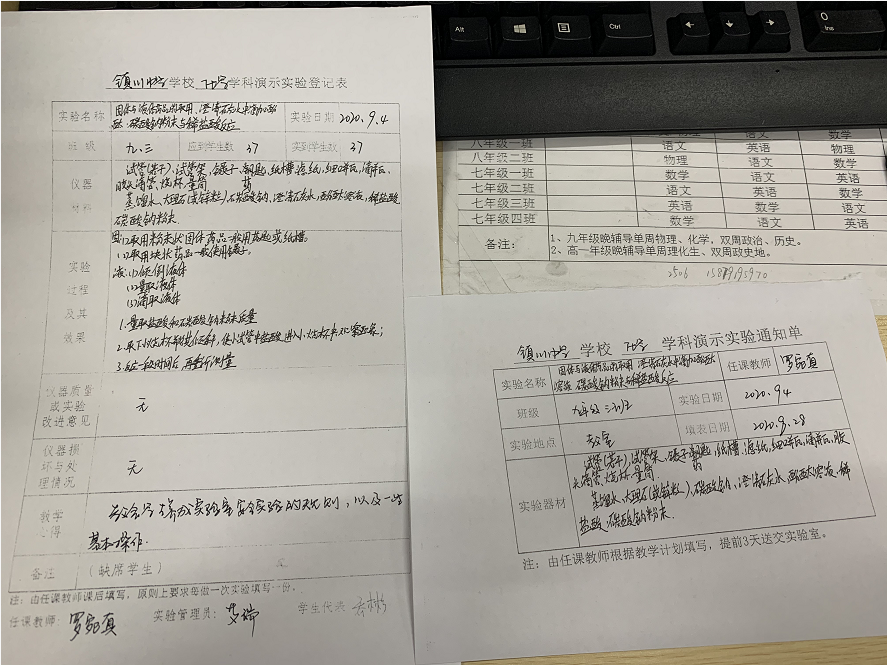 Alt
Ctrl
0
Ins
镇川中学 学校 化学 学科演示实验登记表
实验名称
固体与液体药品的取用、澄清石灰水中滴加
碳酸钠粉末与稀盐酸反应
实验日期 2020.9.4
班 级 九.三 应到学生数 37 实到学生数 37
仪器
材料
试管(若干)、试管架、镊子、药匙、纸槽、滤纸、细口瓶、滴瓶、
胶头滴管、烧杯、量筒
蒸馏水、大理石(或锌粒)、碳酸钠、澄清石灰水、酚酞溶液、稀盐酸
碳酸钠粉末
实验
过程
及其
效果
固:(1)取用粉末状固体药品一般用药匙或纸槽;
(2)取用块状药品一般使用镊子。
液:(1)倾倒液体
(2)量取液体
(3)滴取液体
1.量取盐酸和碳酸钠粉末质量
3.反应一段时间后,再重新测量
仪器质量
或实验
改进意见
无
仪器损
坏与处
理情况
无
教学
心得
基本操作.
备注 (缺席学生)
注:由任课教师课后填写,原则上要求每做一次实验填写一份。
任课教师: 实验管理员: 学生代表
八年级一班 语文 英语 物理
八年级二班 物理 语文 英语
七年级一班 语文 英语 数学
七年级二班 数学 语文 英语
七年级三班 英语 数学 语文
七年级四班 数学 语文 英语
备注:
1、九年级晚辅导单周物理、化学,双周政治、历史。
2、高一年级晚辅导单周理化生、双周政史地。
镇川中学 学校 化学 学科演示实验通知单
实验名称
固体与液体药品的取用、澄清石灰水中滴加
碳酸钠粉末与稀盐酸反应
任课教师
班级 九年级 三班 实验日期 2020.9.4
实验地点 教室 填表日期 2020.9.28
实验器材
试管(若干)、试管架、镊子、药匙、纸槽、滤纸、细口瓶、滴瓶、胶
头滴管、烧杯、量筒
蒸馏水、大理石(或锌粒)、碳酸钠、澄清石灰水、酚酞溶液、稀
盐酸、碳酸钠粉末.
注:由任课教师根据教学计划填写,提前3天送交实验室。